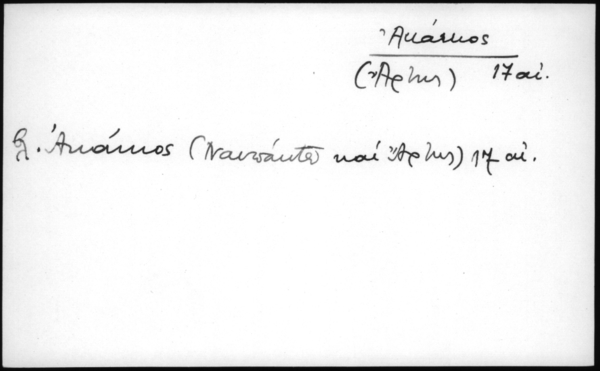 Ἀκάκιος
(Ἄρτης) 17 αἰ.
Ἀκάκιος (Ναυπάκτου καὶ Ἄρτης) 17 αἰ.